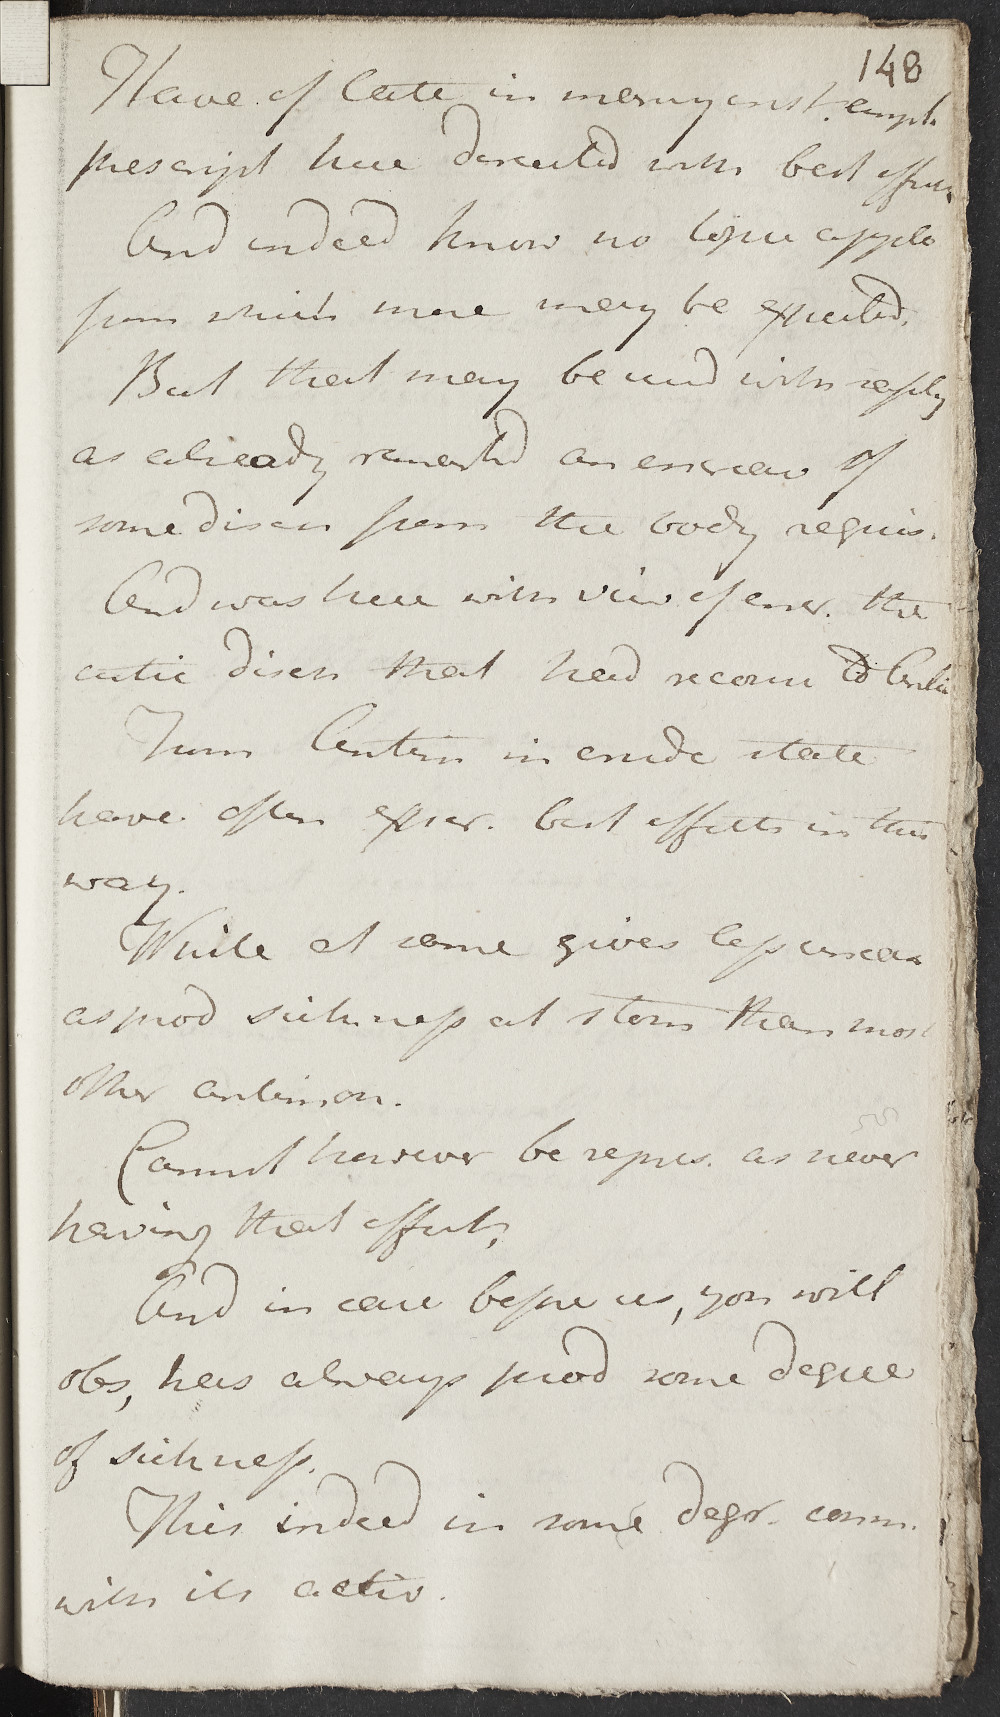 148
Have of late in many inst. empl.
prescript here directed with best effects
And indeed know no topic applic
from which more may be expected.
But that may be used with reply
as already remarked an increase of
some disch from the body requis.
And was here with view of incr. the
cutic disch that had recour to Antim
From Antim in crude state
have often exper. best effects in this
way.
While at same gives less uneas
as prod sickness at stom than most
other antimon.
Cannot however be repres. as never
having that effect,
And in case before us, you will
obs, has always prod some degree
of sickness.
This indeed in some degr. conn.
with its activ.